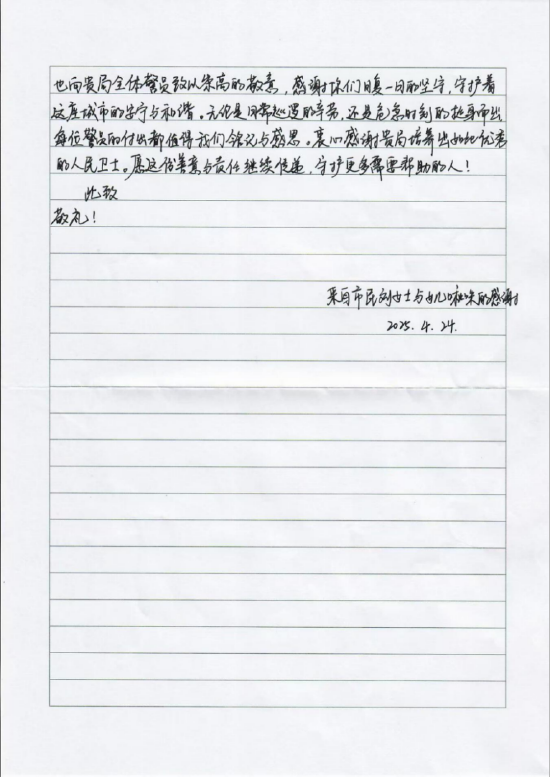 也向贵局全体警员致以崇高的敬意，感谢你们日复一日的坚守，守护着
这座城市的安宁与和谐。无论是日常巡逻的辛劳，还是危急时刻的挺身而出
每位警员的付出都值得我们铭记与感恩。衷心感谢贵局培养出如此优秀
的人民卫士。愿这份善意与责任继续传递，守护更多需要帮助的人！
此致
敬礼！
来自市民刘女士与女儿的感谢
2025.4.24.